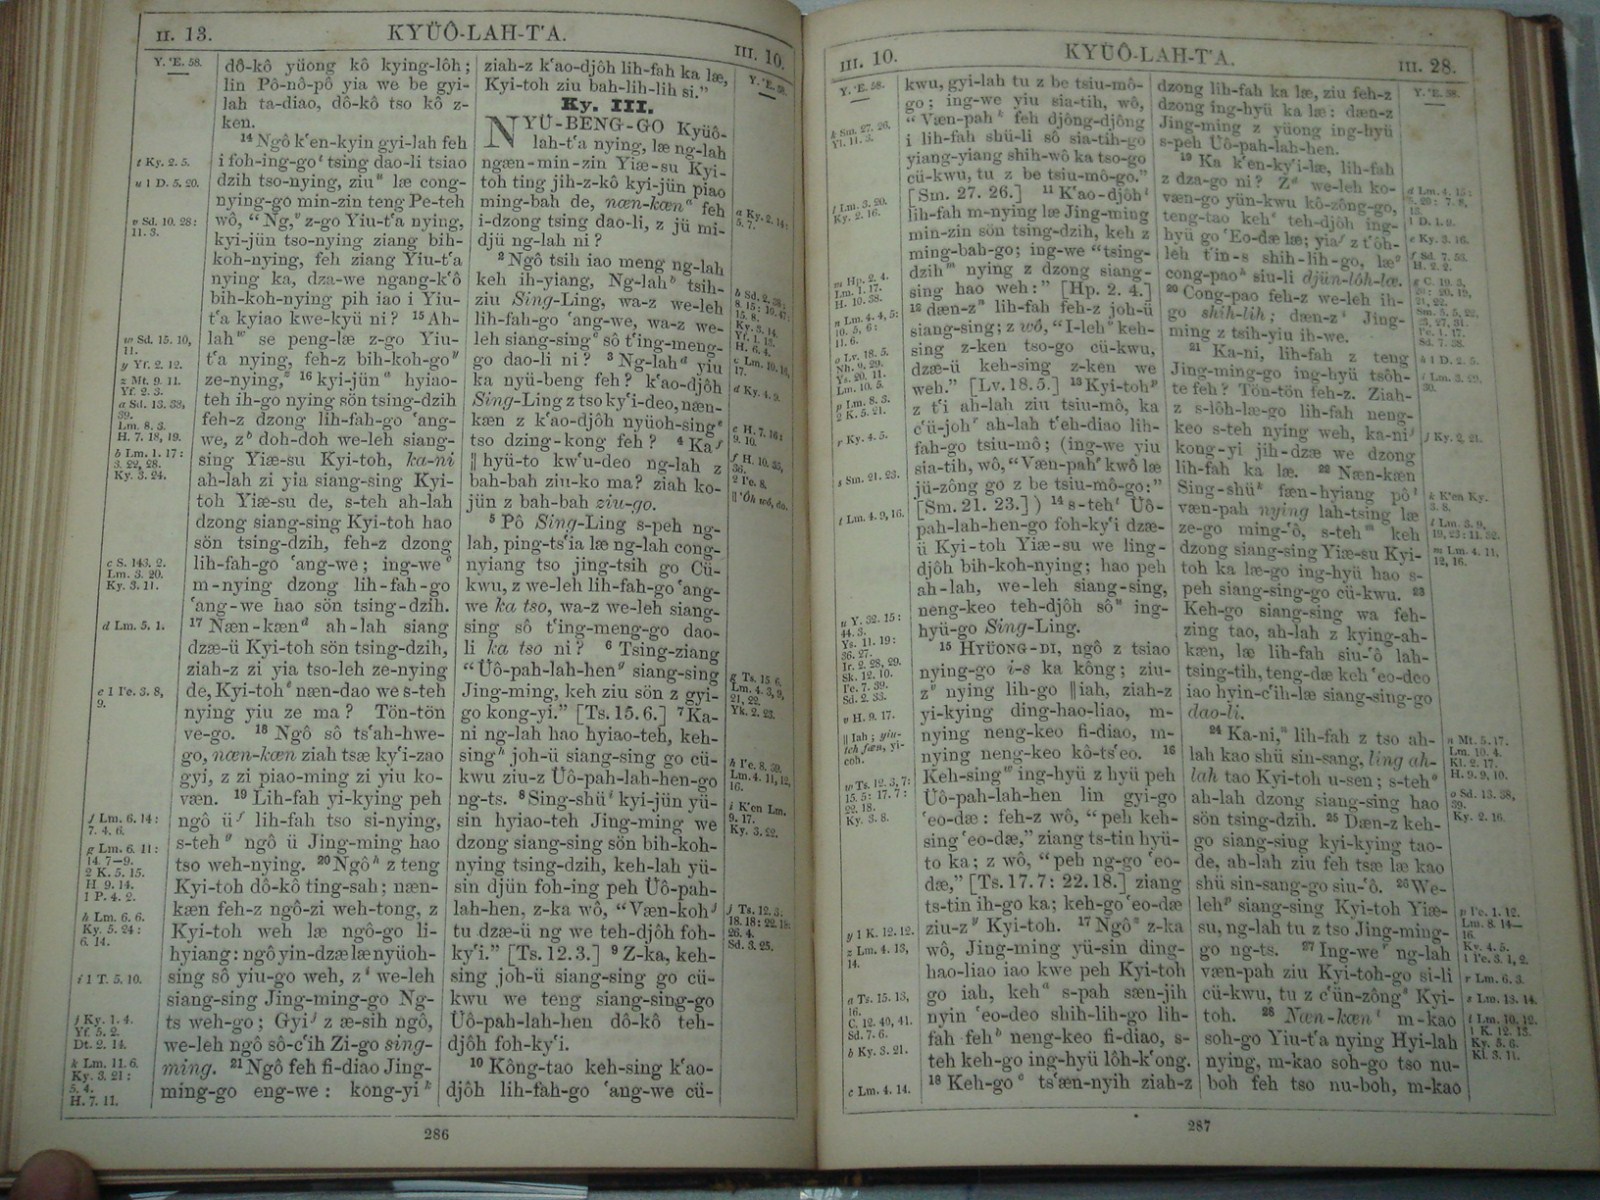 II. 13.
KYÜÔ-LAH-T'A.
III. 10.
Y. 'E. 58.
dô-kô yüong kô kying-lôh;
lin Pô-nô-pô yia we be gyi-
lah ta-diao, dô-kô tso kô z-
ken.
14 Ngô k'en-kyin gyi-lah feh
i foh-ing-go t tsing dao-li tsiao
dzih tso-nying, ziu u læ cong-
nying-go min-zin teng Pe-teh
wô, “Ng, v z-go Yiu-t'a nying,
kyi-jün tso-nying ziang bih-
koh-nying, feh ziang Yiu-t'a
nying ka, dza-we ngang-k'ô
bih-koh-nying pih iao i Yiu-
t'a kyiao kwe-kyü ni? 15 Ah-
lah w se peng-læ z-go Yiu-
t'a nying, feh-z bih-koh-go y
ze-nying, z 16 kyi-jün a hyiao-
teh ih-go nying sön tsing-dzih
feh-z dzong lih-fah-go 'ang-
we, z b doh-doh we-leh siang-
sing Yiæ-su Kyi-toh, ka-ni
ah-lah zi yia siang-sing Kyi-
toh Yiæ-su de, s-teh ah-lah
dzong siang-sing Kyi-toh hao
sön tsing-dzih, feh-z dzong
lih-fah-go 'ang-we; ing-we c
m-nying dzong lih-fah-go
'ang-we hao sön tsing-dzih.
17 Næn-kæn d ah-lah siang
dzæ-ü Kyi-toh sön tsing-dzih,
ziah-z zi yia tso-leh ze-nying
de, Kyi-toh e næn-dao we s-teh
nying yiu ze ma? Tön-tön
ve-go. 18 Ngô sô ts'ah-hwe-
go, næn-kæn ziah tsæ ky'i-zao
gyi, z zi piao-ming zi yiu ko-
væn. 19 Lih-fah yi-kying peh
ngô ü f lih-fah tso si-nying,
s-teh g ngô ü Jing-ming hao
tso weh-nying. 20 Ngô h z teng
Kyi-toh dô-kô ting-sah; næn-
kæn feh-z ngô-zi weh-tong, z
Kyi-toh weh læ ngô-go li-
hyiang: ngô yin-dzæ læ nyüoh-
sing sô yiu-go weh, z i we-leh
siang-sing Jing-ming-go Ng-
ts weh-go; Gyi j z æ-sih ngô,
we-leh ngô sô-c'ih Zi-go sing-
ming. 21 Ngô feh fi-diao Jing-
ming-go eng-we: kong-yi k
t Ky. 2. 5.
u 1 D. 5. 20.
v Sd. 10. 28:
11. 3.
w Sd. 15. 10,
11.
y Yf. 2. 12.
z Mt. 9. 11.
Yf. 2. 3.
a Sd. 13. 38,
39.
Lm. 8. 3.
H. 7. 18, 19.
b Lm. 1. 17:
3. 22, 28.
Ky. 3. 24.
c S. 143. 2.
Lm. 3. 20.
Ky. 3. 11.
d Lm. 5. 1.
e 1 Pe. 3. 8,
9.
f Lm. 6. 14:
7. 4. 6.
g Lm. 6. 11:
14. 7–9.
2 K. 5. 15.
H 9. 14.
1 P. 4. 2.
h Lm. 6. 6.
Ky. 5. 24:
6. 14.
i 1 T. 5. 10.
j Ky. 1. 4.
Yf. 5. 2.
Dt. 2. 14.
k Lm. 11. 6.
Ky. 3. 21:
5. 4.
H. 7. 11.
ziah-z k'ao-djôh lih-fah ka læ,
Kyi-toh ziu bah-lih-lih si.”
Ky. III.
NYÜ-BENG-GO Kyüô-
lah-t'a nying, læ ng-lah
ngæn-min-zin Yiæ-su Kyi-
toh ting jih-z-kô kyi-jün piao
ming-bah de, næn-kæn a feh
i-dzong tsing dao-li, z jü mi-
djü ng-lah ni?
2 Ngô tsih iao meng ng-lah
keh ih-yiang, Ng-lah b tsih-
ziu Sing-Ling, wa-z we-leh
lih-fah-go 'ang-we, wa-z we-
leh siang-sing c sô t'ing-meng-
go dao-li ni? 3 Ng-lah d yiu
ka nyü-beng feh? k'ao-djôh
Sing-Ling z tso ky'i-deo, næn-
kæn z k'ao-djôh nyüoh-sing e
tso dzing-kong feh? 4 Ka f
‖ hyü-to kw'u-deo ng-lah z
bah-bah ziu-ko ma? ziah ko-
jün z bah-bah ziu-go.
5 Pô Sing-Ling s-peh ng-
lah, ping-ts'ia læ ng-lah cong-
nyiang tso jing-tsih go Cü-
kwu, z we-leh lih-fah-go 'ang-
we ka tso, wa-z we-leh siang-
sing sô t'ing-meng-go dao-
li ka tso ni? 6 Tsing-ziang
“Üô-pah-lah-hen g siang-sing
Jing-ming, keh ziu sön z gyi-
go kong-yi.” [Ts. 15. 6.] 7 Ka-
ni ng-lah hao hyiao-teh, keh-
sing h joh-ü siang-sing go cü-
kwu ziu-z Üô-pah-lah-hen-go
ng-ts. 8 Sing-shü i kyi-jün yü-
sin hyiao-teh Jing-ming we
dzong siang-sing sön bih-koh-
nying tsing-dzih, keh-lah yü-
sin djün foh-ing peh Üô-pah-
lah-hen, z-ka wô, “Væn-koh j
tu dzæ-ü ng we teh-djôh foh-
ky'i.” [Ts. 12. 3.] 9 Z-ka, keh-
sing joh-ü siang-sing go cü-
kwu we teng siang-sing-go
Üô-pah-lah-hen dô-kô teh-
djôh foh-ky'i.
10 Kông-tao keh-sing k'ao-
djôh lih-fah-go 'ang-we cü-
Y. 'E. 58.
a Ky. 2. 14:
5. 7.
c Lm. 10. 16,
17.
d Ky. 4. 9.
e H. 7. 16:
9. 10.
f H. 10. 35,
36.
2 Pe. 8.
‖ 'Ôh wô, do.
g Ts. 15 6.
Lm. 4. 3, 9,
21, 22.
Yk. 2. 23.
h Pe. 8. 39.
Lm. 4. 11, 12,
16.
i K'en Lm.
9. 17.
Ky. 3. 22.
j Ts. 12. 3:
18. 18: 22. 18:
26. 4.
Sd. 3. 25.
286
III. 10.
KYÜÔ-LAH-T'A.
III. 28.
Y. 'E. 58.
kwu, gyi-lah tu z be tsiu-mô-
go; ing-we yiu sia-tih, wô,
“Væn-pah k feh djông-djông
i lih-fah shü-li sô sia-tih-go
yiang-yiang shih-wô ka tso-go
cü-kwu, tu z be tsiu-mô-go.”
[Sm. 27. 26.] 11 K'ao-djôh l
lih-fah m-nying læ Jing-ming
min-zin sön tsing-dzih, keh z
ming-bah-go; ing-we “tsing-
dzih m nying z dzong siang-
sing hao weh:” [Hp. 2. 4.]
12 dæn-z n lih-fah feh-z joh-ü
siang-sing; z wô, “I-leh o keh-
sing z-ken tso-go cü-kwu,
dzæ-ü keh-sing z-ken we
weh.” [Lv. 18. 5.] 13 Kyi-toh p
z t'i ah-lah ziu tsiu-mô, ka
c'ü-joh r ah-lah t'eh-diao lih-
fah-go tsiu-mô; (ing-we yiu
sia-tih, wô, “Væn-pah s kwô læ
jü-zông go z be tsiu-mô-go:”
[Sm. 21. 23.] ) 14 s-teh t Üô-
pah-lah-hen-go foh-ky'i dzæ-
ü Kyi-toh Yiæ-su we ling-
djôh bih-koh-nying; hao peh
ah-lah, we-leh siang-sing,
neng-keo teh-djôh sô u ing-
hyü-go Sing-Ling.
15 HYÜONG-DI, ngô z tsiao
nying-go i-s ka kông; ziu-
z v nying lih-go ‖ iah, ziah-z
yi-kying ding-hao-liao, m-
nying neng-keo fi-diao, m-
nying neng-keo kô-ts'eo. 16
Keh-sing w ing-hyü z hyü peh
Üô-pah-lah-hen lin gyi-go
'eo-dæ: feh-z wô, “peh keh-
sing 'eo-dæ,” ziang ts-tin hyü-
to ka; z wô, “peh ng-go 'eo-
dæ,” [Ts. 17. 7: 22. 18.] ziang
ts-tin ih-go ka; keh-go 'eo-dæ
ziu-z y Kyi-toh. 17 Ngô z z-ka
wô, Jing-ming yü-sin ding-
hao-liao iao kwe peh Kyi-toh
go iah, keh a s-pah sæn-jih
nyin 'eo-deo shih-lih-go lih-
fah feh b neng-keo fi-diao, s-
teh keh-go ing-hyü lôh-k'ong.
18 Keh-go c ts'æn-nyih ziah-z
k Sm. 27. 26.
l Lm. 3. 20.
Ky. 2. 16.
m Hp. 2. 4.
Lm. 1. 17.
H. 10. 38.
n Lm. 4. 4, 5:
10. 5, 6:
11. 6.
o Lv. 18. 5.
Nh. 9. 29.
Ys. 20. 11.
Lm. 10. 5.
p Lm. 8. 3.
2 K. 5. 21.
r Ky. 4. 5.
s Sm. 21. 23.
t Lm. 4. 9, 16.
u Y. 32. 15:
44. 3.
Ys. 11. 19:
36. 27.
Ir. 2. 28, 29.
Sk. 12. 10.
Pe. 7. 39.
Sd. 2. 33.
v H. 9. 17.
w Ts. 12. 3, 7:
15. 5: 17. 7:
22. 18.
Ky. 3. 8.
y 1 K. 12. 12.
z Lm. 4. 13,
14.
a Ts. 15. 13,
16.
C. 12. 40, 41.
Sd. 7. 6.
b Ky. 3. 21.
c Lm. 4. 14.
dzong lih-fah ka læ, ziu feh-z
dzong ing-hyü ka læ: dæn-z
Jing-ming z yüong ing-hyü
s-peh Üô-pah-lah-hen.
19 Ka k'en-ky'i-læ, lih-fah
z dza-go ni? Z d we-leh ko-
væn-go yün-kwu kô-zông-go,
teng-tao keh e teh-djôh ing-
hyü go 'Eo-dæ læ; yia f z t'ôh-
leh t'in-s shih-lih-go, læ g
cong-pao h siu-li djün-lôh-læ.
20 Cong-pao feh-z we-leh ih-
go shih-lih; dæn-z i Jing-
ming z tsih-yiu ih-we.
21 Ka-ni, lih-fah z teng
Jing-ming-go ing-hyü tsôh-
te feh? Tön-tön feh-z. Ziah-
z s-lôh-læ-go lih-fah neng-
keo s-teh nying weh, ka-ni j
kong-yi jih-dzæ we dzong
lih-fah ka læ. 22 Næn-kæn
Sing-shü k fæn-hyiang pô l
væn-pah nying lah-tsing læ
ze-go ming-'ô, s-teh m keh
dzong siang-sing Yiæ-su Kyi-
toh ka læ-go ing-hyü hao s-
peh siang-sing-go cü-kwu. 23
Keh-go siang-sing wa feh-
zing tao, ah-lah z kying-ah-
kæn, læ lih-fah siu-'ô lah-
tsing-tih, teng-dæ keh 'eo-deo
iao hyin-c'ih-læ siang-sing-go
dao-li.
24 Ka-ni, n lih-fah z tso ah-
lah kao shü sin-sang, ling ah-
lah tao Kyi-toh u-sen; s-teh o
ah-lah dzong siang-sing hao
sön tsing-dzih. 25 Dæn-z keh-
go siang-sing kyi-kying tao-
de, ah-lah ziu feh tsæ læ kao
shü sin-sang-go siu-'ô. 26 We-
leh p siang-sing Kyi-toh Yiæ-
su, ng-lah tu z tso Jing-ming-
go ng-ts. 27 Ing-we r ng-lah
væn-pah ziu Kyi-toh-go si-li
cü-kwu, tu z c'ün-zông s Kyi-
toh. 28 Næn-kæn t m-kao
soh-go Yiu-t'a nying Hyi-lah
nying, m-kao soh-go tso nu-
boh feh tso nu-boh, m-kao
Y. 'E. 58.
e Ky. 3. 16.
j Ky. 2. 21.
k K'en Ky.
3. 8.
m Lm. 4. 11,
12, 16.
n Mt. 5. 17.
Lm. 10. 4.
Kl. 2. 17.
H. 9. 9, 10.
o Sd. 13. 38,
39.
Ky. 2. 16.
p Pe. 1. 12.
Lm. 8. 14–
16.
Ky. 4. 5.
1 Pe. 3. 1, 2.
r Lm. 6. 3.
s Lm. 13. 14.
t Lm. 10. 12.
1 K. 12. 13.
Ky. 5. 6.
Kl. 3. 11.
287